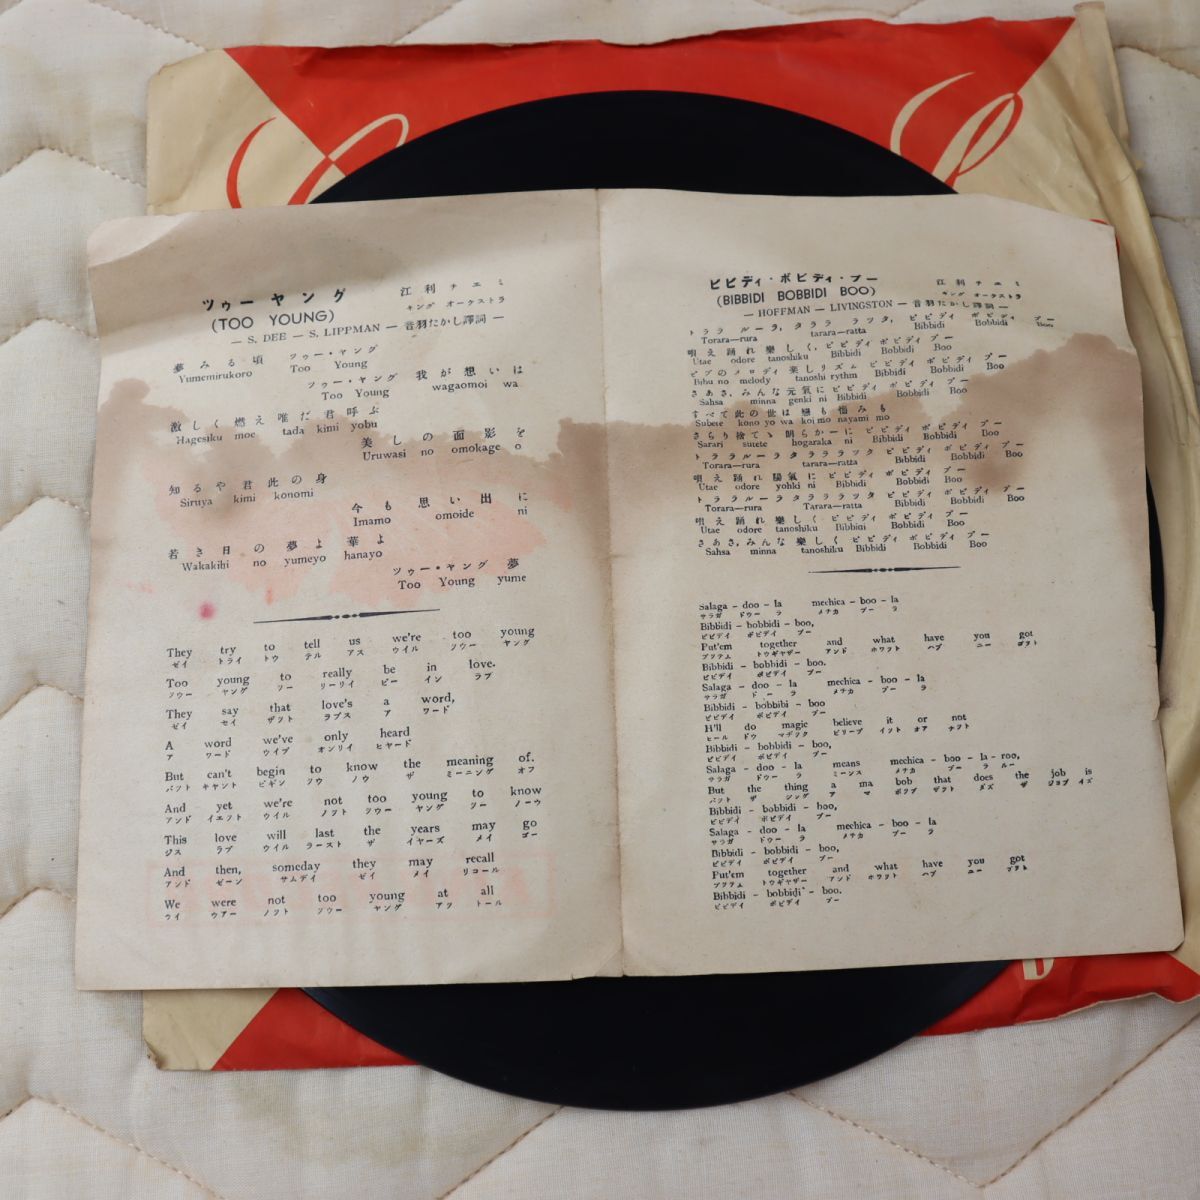 ツゥー ヤング
(TOO YOUNG)
江利チエミ
キング オーケストラ
— S. DEE — S. LIPPMAN — 音羽たかし譯詞 —
夢みる頃 ツゥー・ヤング
Yumemirukoro Too Young
ツゥー・ヤング 我が想いは
Too Young wagaomoi wa
激しく燃え唯だ君呼ぶ
Hagesiku moe tada kimi yobu
美しの面影を
Uruwasi no omokage o
知るや君此の身
Siruya kimi konomi
今も思い出に
Imamo omoide ni
若き日の夢よ華よ
Wakakihi no yumeyo hanayo
ツゥー・ヤング 夢
Too Young yume
They try to tell us we're too young
ゼイ トライ トウ テル アス ウイル ツウー ヤング
Too young to really be in love.
ツウー ヤング ツー リーリイ ビー イン ラブ
They say that love's a word,
ゼイ セイ ザット ラブス ア ワード
A word we've only heard
ア ワード ウイブ オンリイ ヒヤード
But can't begin to know the meaning of.
バット キャント ビギン ツウ ノウ ザ ミーニング オフ
And yet we're not too young to know
アンド イエット ウイル ノット ツウー ヤング ツー ノーウ
This love will last the years may go
ジス ラブ ウイル ラースト ザ イヤーズ メイ ゴー
And then, someday they may recall
アンド ゼーン サムデイ ゼイ メイ リコール
We were not too young at all
ウイ ウアー ノット ツウー ヤング アツ トール
ビビディ・ボビディ・ブー
(BIBBIDI BOBBIDI BOO)
江利チエミ
キング オーケストラ
— HOFFMAN — LIVINGSTON — 音羽たかし譯詞 —
トララルーラ, タララ ラッタ, ビビディ ボビディ ブー
Torara—rura tarara—ratta Bibbidi Bobbidi Boo
唄え踊れ樂しく, ビビディ ボビディ ブー
Utae odore tanoshiku Bibbidi Bobbidi Boo
ビブのメロディ 楽しリズム ビビディ ボビディ ブー
Bibu no melody tanoshi rythm Bibbidi Bobbidi Boo
さあさ, みんな元氣に ビビディ ボビディ ブー
Sahsa minna genki ni Bibbidi Bobbidi Boo
すべて此の世は 戀も悩みも
Subete kono yo wa koi mo nayami mo
さらり捨てゝ 朗らかーに ビビディ ボビディ ブー
Sarari sutete hogaraka ni Bibbidi Bobbidi Boo
トララルーラ タララ ラッタ ビビディ ボビディ ブー
Torara—rura tarara—ratta Bibbidi Bobbidi Boo
唄え踊れ陽氣に ビビディ ボビディ ブー
Utae odore yohki ni Bibbidi Bobbidi Boo
トララルーラ タララ ラッタ ビビディ ボビディ ブー
Torara—rura Tarara—ratta Bibbidi Bobbidi Boo
唄え踊れ樂しく ビビディ ボビディ ブー
Utae odore tanoshiku Bibbidi Bobbidi Boo
さあさ, みんな樂しく ビビディ ボビディ ブー
Sahsa minna tanoshiku Bibbidi Bobbidi Boo
Salaga - doo - la mechica - boo - la
サラガ ドウー ラ メチカ ブー ラ
Bibbidi - bobbidi - boo,
ビビデイ ボビデイ ブー
Put'em together and what have you got
プツテム トウギヤザー アンド ホワット ハブ ユー ガット
Bibbidi - bobbidi - boo.
ビビデイ ボビデイ ブー
Salaga - doo - la mechica - boo - la
サラガ ドー ラ メチカ ブー ラ
Bibbidi - bobbibi - boo
ビビデイ ボビデイ ブー
H'll do magic believe it or not
ヒール ドウ マヂック ビリーブ イット オア ナツト
Bibbidi - bobbidi - boo,
ビビデイ ボビデイ ブー
Salaga - doo - la means mechica - boo - la - roo,
サラガ ドウー ラ ミーンス メチカ ブー ラ ルー
But the thing a ma bob that does the job is
バット ザ シング ア マ ボツブ ザツト ダズ ザ ジョブ イズ
Bibbidi - bobbidi - boo,
ビビデイ ボビデイ ブー
Salaga - doo - la mechica - boo - la
サラガ ドウー ラ メチカ ブー ラ
Bibbidi - bobbidi - boo,
ビビデイ ボビデイ ブー
Put'em together and what have you got
プツテム トウギヤザー アンド ホワット ハブ ユー ガット
Bibbidi - bobbidi - boo.
ビビデイ ボビデイ ブー